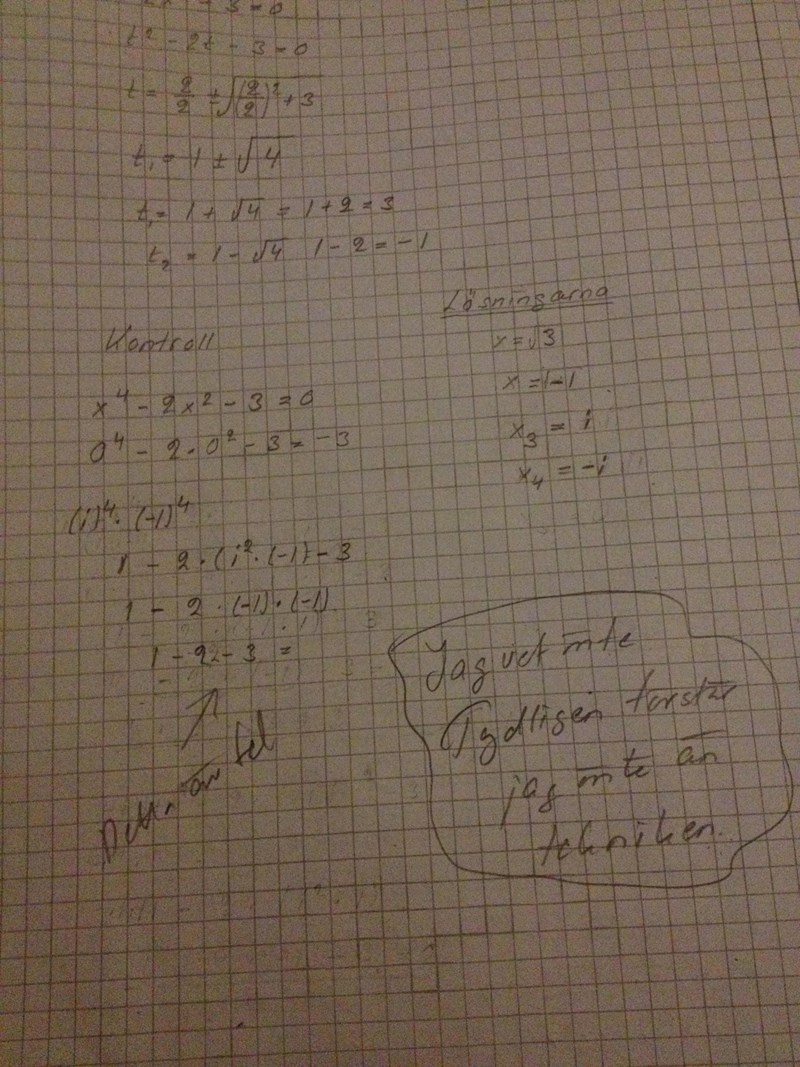 - 3 = 0
t² - 2t - 3 = 0
t = 2/2 ± √(2/2)² + 3
t₁ = 1 ± √4
t₁ = 1 + √4 = 1 + 2 = 3
t₂ = 1 - √4 1 - 2 = -1
Lösningarna
x = √3
x = 1-1
x₃ = i
x₄ = -i
Kontroll
x⁴ - 2x² - 3 = 0
0⁴ - 2 · 0² - 3 = -3
(i)⁴ · (-1)⁴
1 - 2 · (i² · (-1) - 3
1 - 2 · (-1) · (-1)
1 - 2 - 3 =
är fel
Jag vet inte
Tydligen förstår
jag inte än
tekniken.